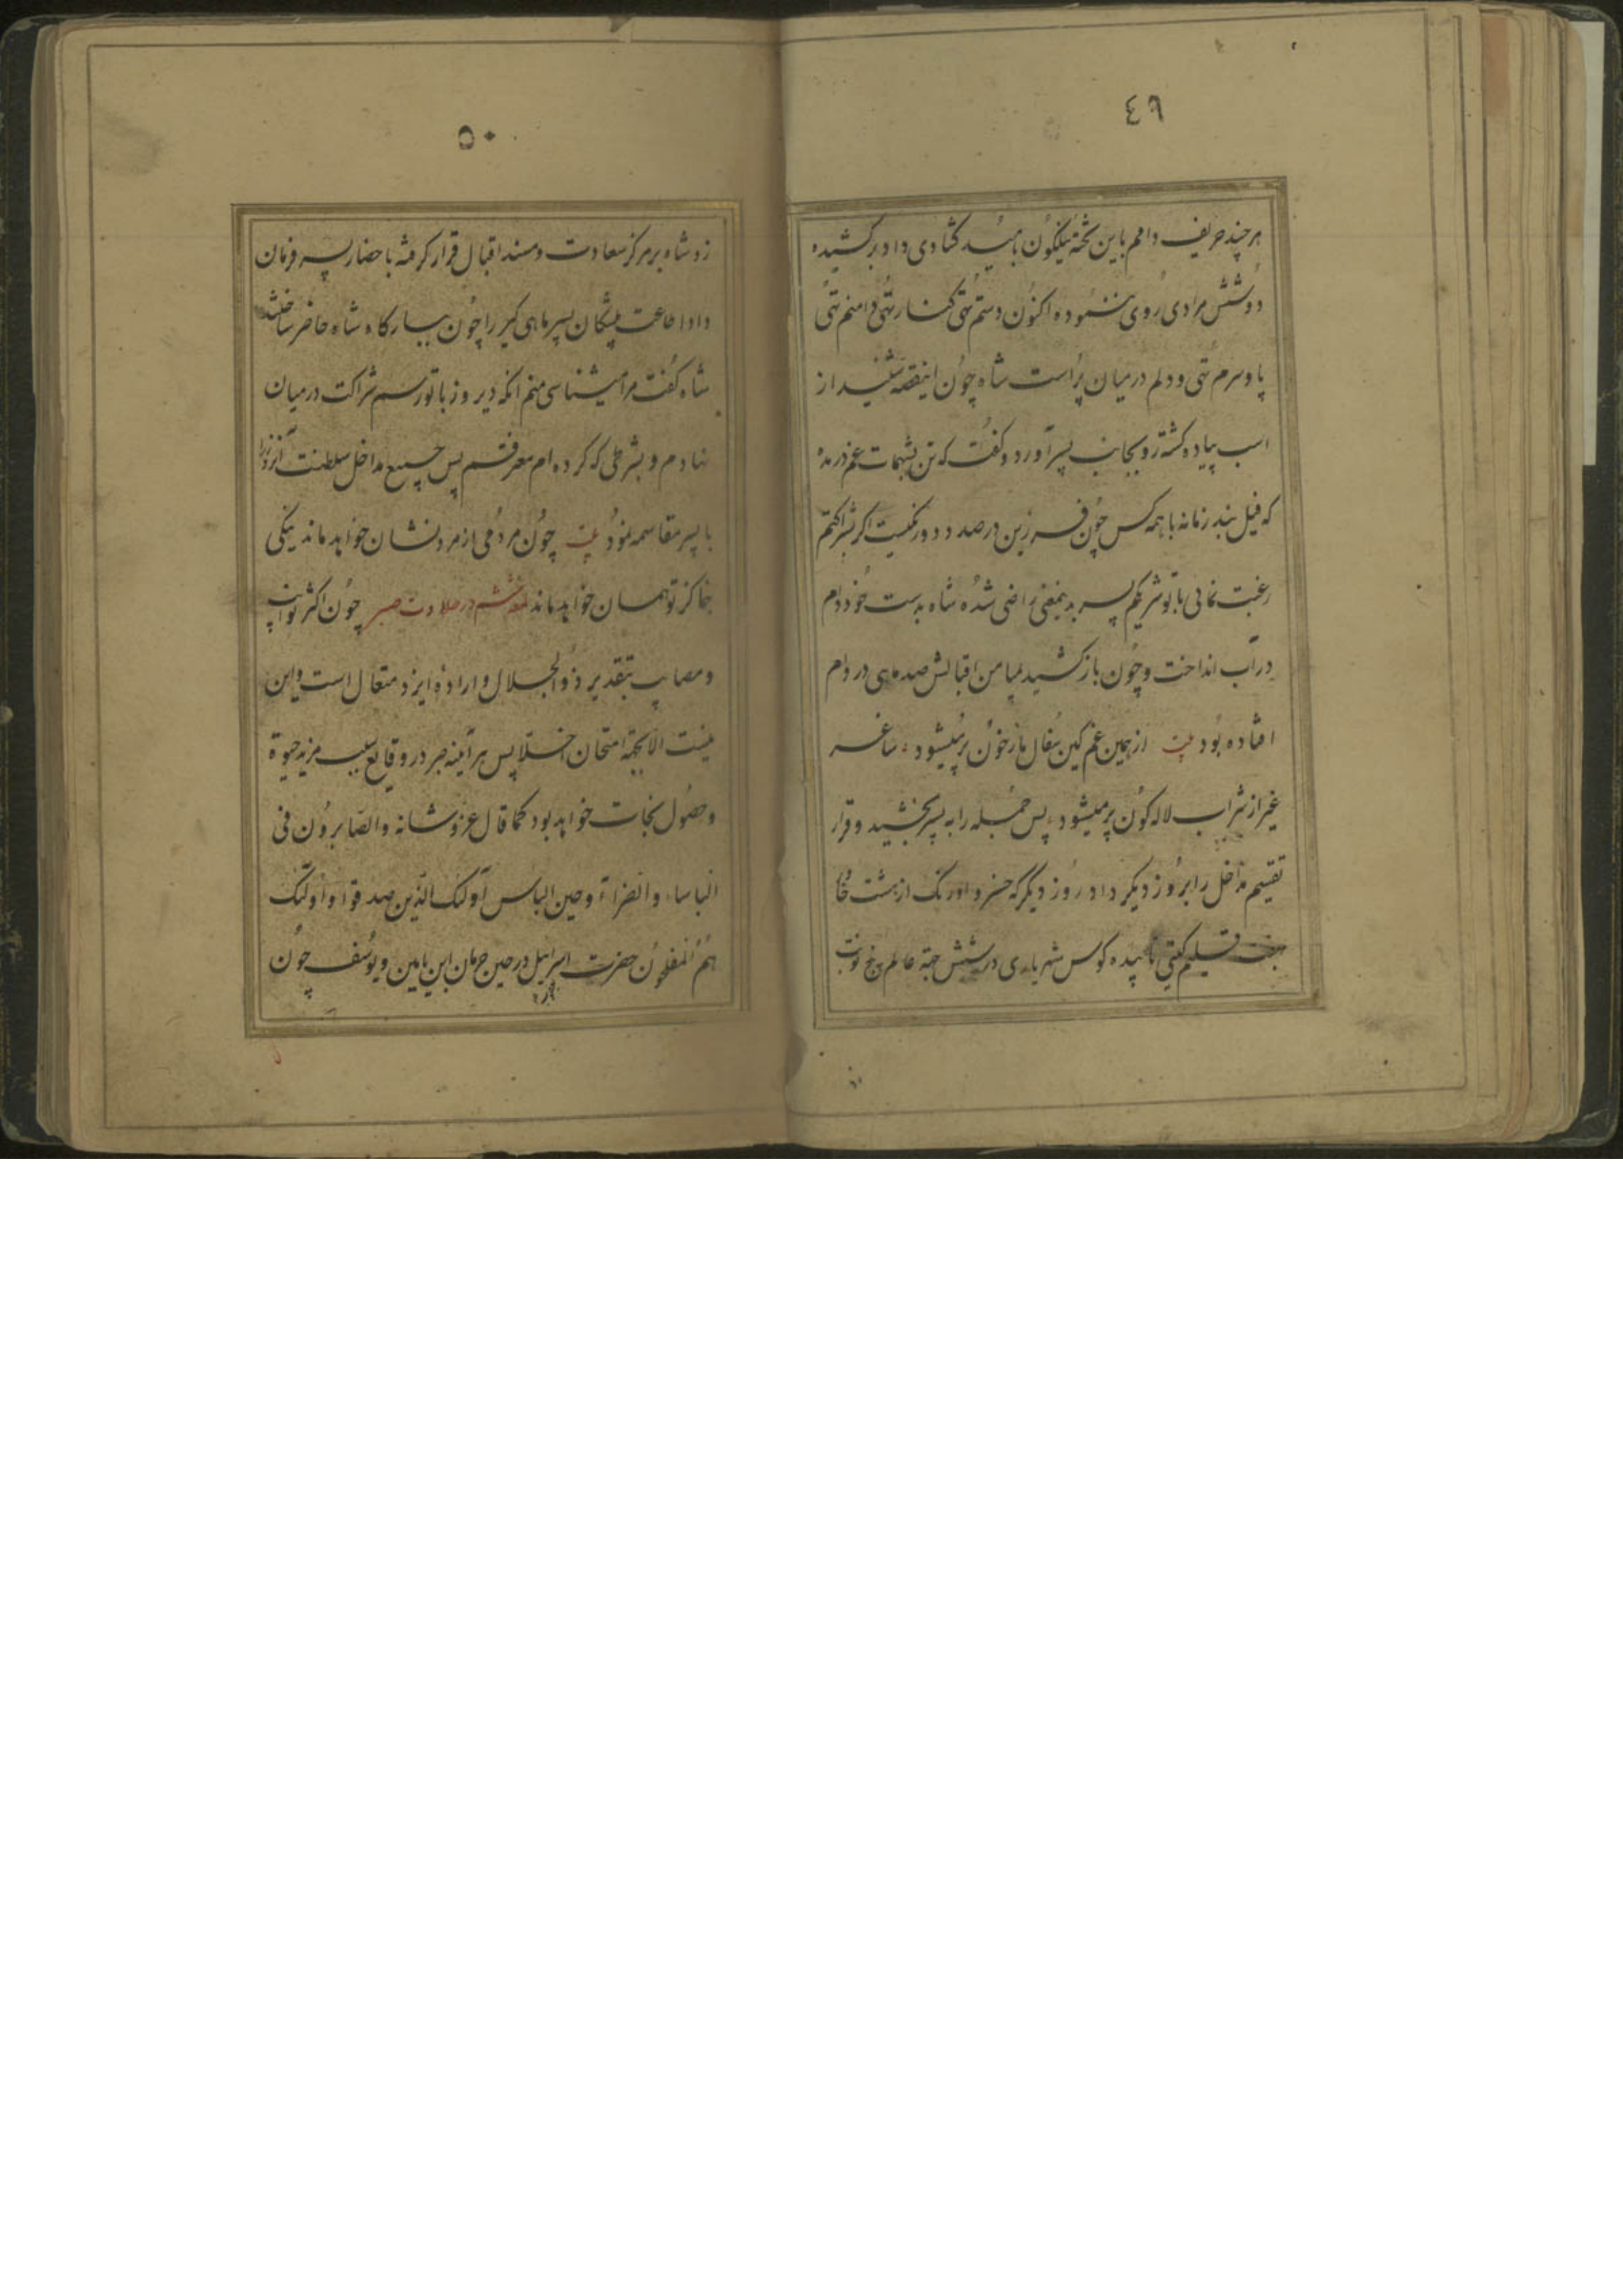 ٤٩
هر چند حریف دامم باین تخته نیلگون بامید گشادی داد بر کشیده
دوشش مرادی روی ننموده اکنون دستم تهی کنار تهی دامنم تهی
پا و سرم تهی و دلم در میان پر است شاه چون اینقصه شنید از
اسب پیاده گشته رو بجانب پسر آورد و گفت که تن بشهمات غم در مده
که فیل بند زمانه با همه کس چون فرزین در صدد دورنگیست اگر بشراکتم
رغبت نمائی با تو شریکم پسر بدینمعنی راضی شده شاه بدست خود دام
در آب انداخت و چون باز کشید بمیامن اقبالش صد ماهی در دام
افتاده بود بیت از همین غم کین سفال ما ز خون پر میشود ساغر
غیر از شراب لاله گون پر میشود پس جمله را به پسر بخشید و قرار
تقسیم مداخل را بروز دیگر داد روز دیگر که خسرو اورنگ از هشت
اقلیم گیتی کوس شهریاری در شش جهة عالم پنج نوبت
٥٠
زد شاه بر مرکز سعادت و مسند اقبال قرار گرفته باحضار پسر فرمان
داد اطاعت پیشگان پسر ماهی گیر را چون ببارگاه شاه حاضر ساختند
شاه گفت مرا میشناسی منم آنکه دیروز با تو رسم شراکت در میان
نهادم و بشرطی که کرده ام معترفم پس جمیع مداخل سلطنت آنروز را
با پسر مقاسمه نمود بیت چون مردمی از مرد نشان خواهد ماند نیکی
بنما کز تو همان خواهد ماند لمعه ششم در حلاوت صبر چون اکثر نوایب
و مصایب بتقدیر ذوالجلال و اراده ایزد متعال است و این
نیست الا بجهة امتحان اخلا پس هر آینه صبر در وقایع سبب مزید حیوة
و حصول نجات خواهد بود کما قال عز و شانه والصابرون فی
الباساء والضراء وحین الباس اولئک الذین صدقوا و اولئک
هم المفلحون حضرت اسرائیل در حین حرمان ابن یامین و یوسف چون